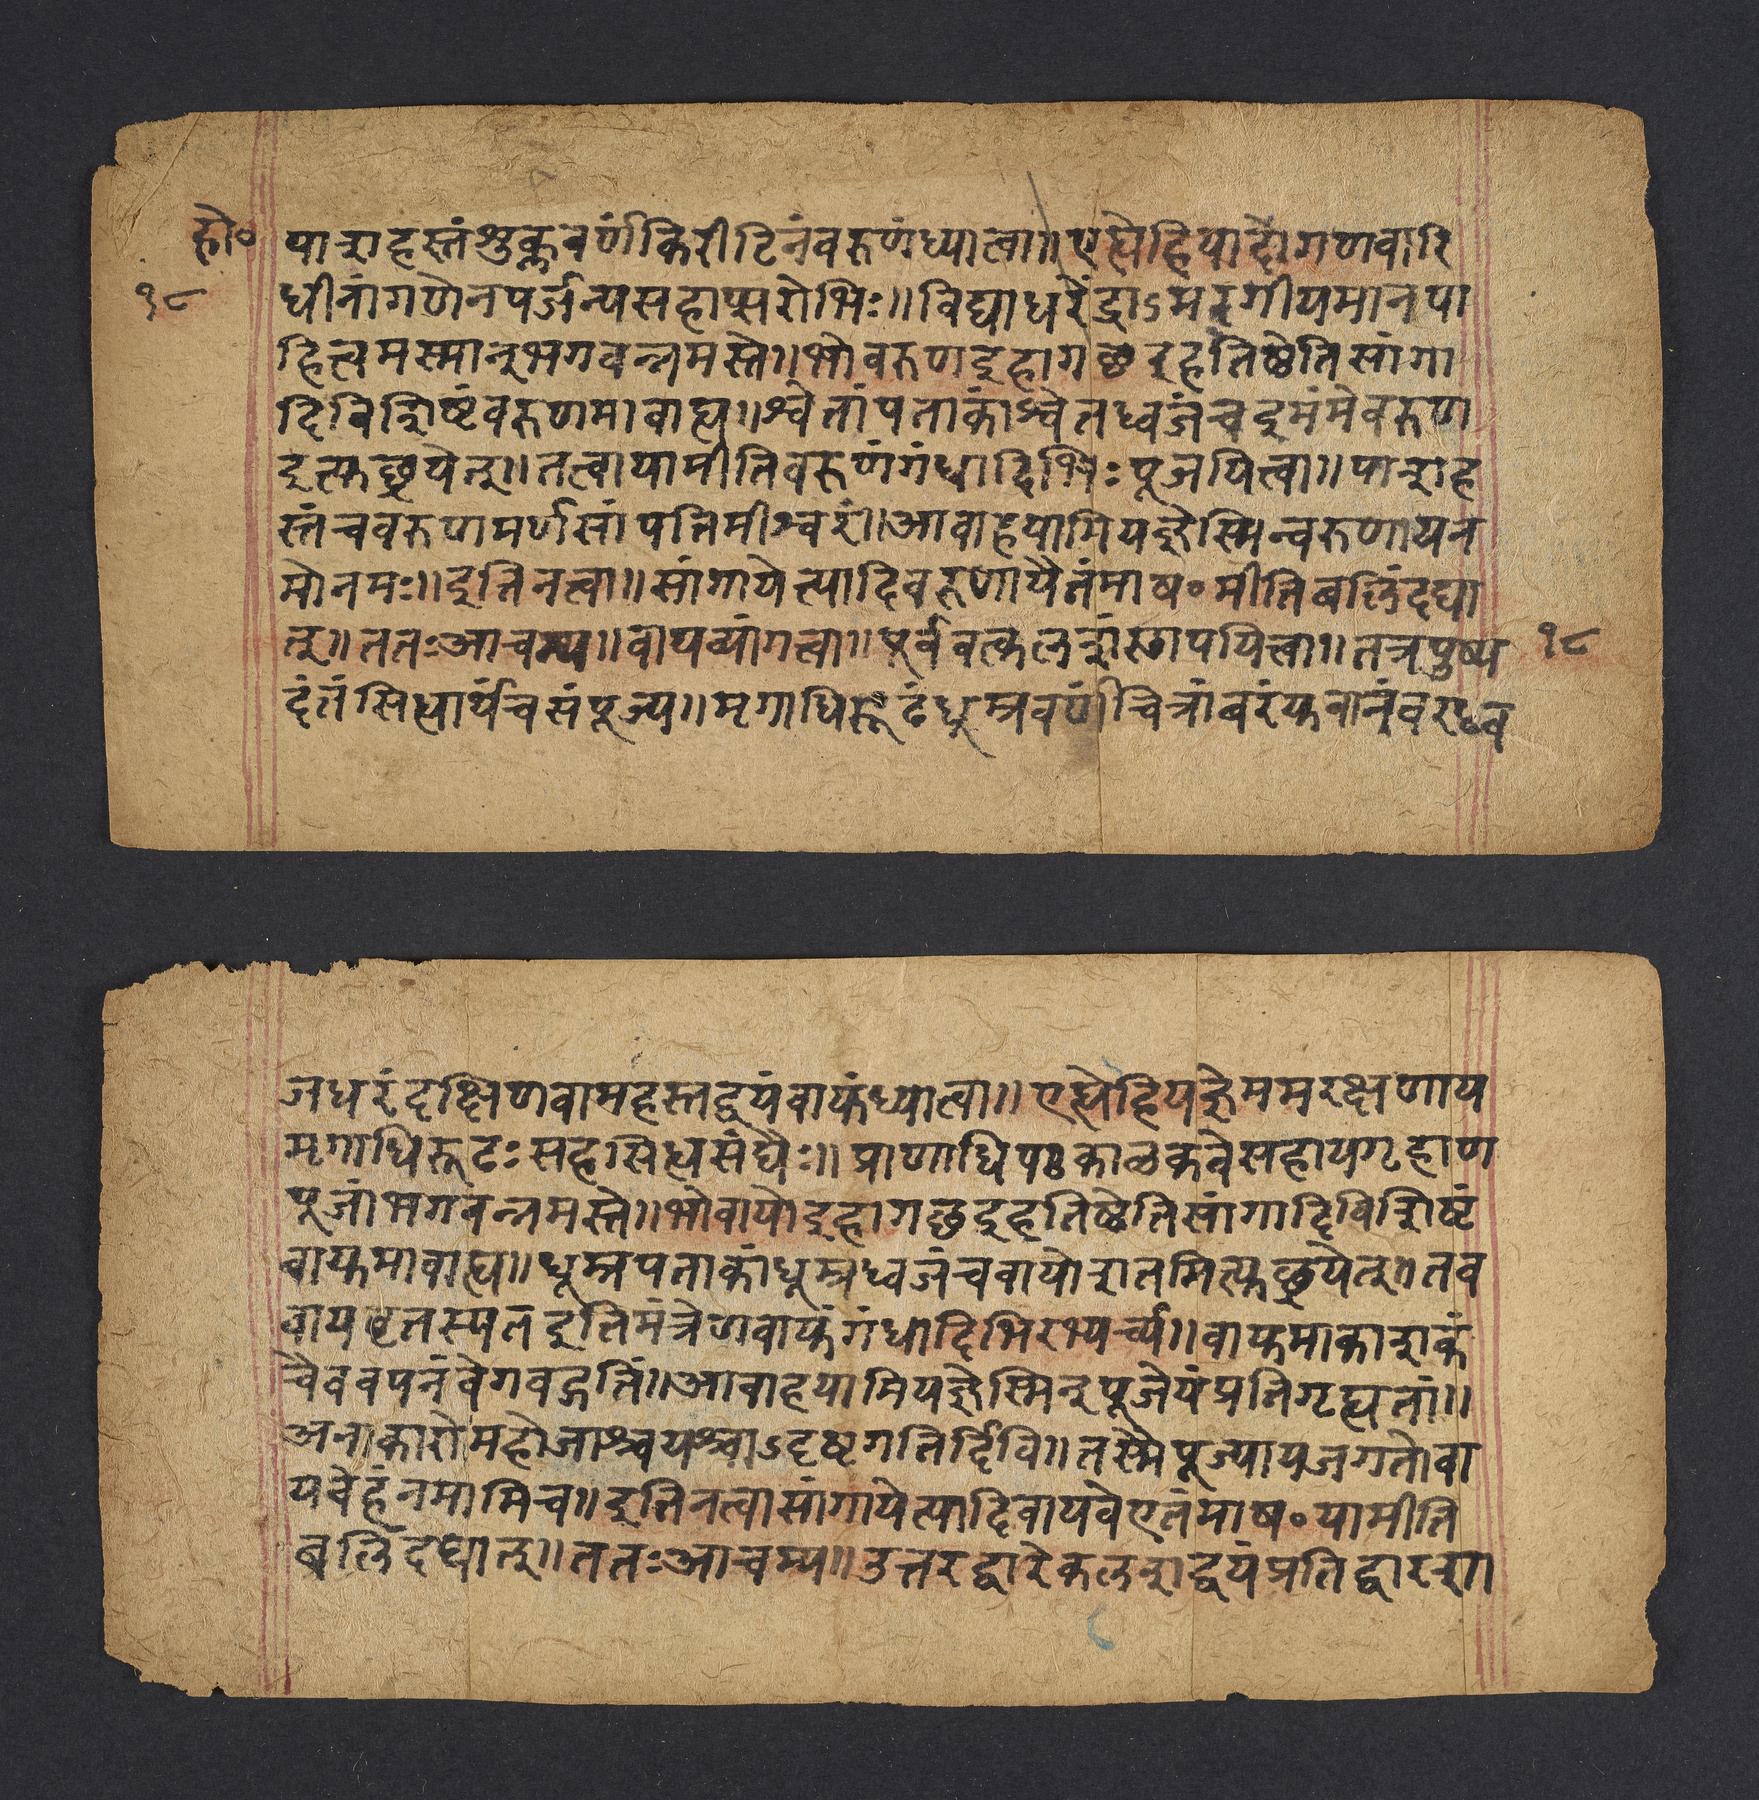 हो॰ पाशहस्तं शुक्लवर्णं किरीटिनं वरुणं ध्यात्वा॥ एह्येहि यादो गणवारि
१८ धीनां गणेन पर्जन्य सहाप्सरोभिः॥ विद्याधरेंद्राऽमरगीयमान पा
हि त्वमस्मान् भगवन्नमस्ते॥ भो वरुण इहागछ इह तिष्ठेति सांगा
दिविशिष्टं वरुणमावाह्य॥ श्वेतां पताकां श्वेतध्वजं च इमंमेवरुण
इत्युछ्रयेत्॥ तत्वायामीति वरुणं गंधादिभिः पूजयित्वा॥ पाशह
स्तं च वरुणमर्णसां पतिमीश्वरं॥ आवाहयामि यज्ञेस्मिन् वरुणाय न
मो नमः॥ इति नत्वा॥ सांगायेत्यादि वरुणायैतं माष॰ मीति बलिं दद्या
त्॥ ततः आचम्य॥ वायव्यां गत्वा॥ पूर्ववत्कलशं स्थापयित्वा॥ तत्र पुष्प १८
दंतं सिध्यार्थं च संपूज्य॥ मृगाधिरूढं धूम्रवर्णं चित्रांबरं युवानं वरध्व
जधरं दक्षिणवामहस्तद्वयं वायुं ध्यात्वा॥ एह्येहि यज्ञे मम रक्षणाय
मृगाधिरूढः सह सिध्य संघैः॥ प्राणाधिपः कालकवे सहाय गृहाण
पूजां भगवन्नमस्ते॥ भो वायो इहागछ इह तिष्ठेति सांगादिविशिष्टं
वायुमावाह्य॥ धूम्रपताकां धूम्रध्वजं च वायो शतमित्युछ्रयेत्॥ तव
वायवृतस्पत इति मंत्रेण वायुं गंधादिभिरभ्यर्च्य॥ वायुमाकाशकं
चैव वपनं वेगवद्गतिं॥ आवाहयामि यज्ञेस्मिन् पूजेयं प्रतिगृह्यतां॥
अनाकारो महौजाश्च यश्चाऽदृष्टगतिर्दिवि॥ तस्मै पूज्याय जगतो वा
यवेहं नमामि च॥ इति नत्वा सांगायेत्यादि वायवे एतं माष॰ यामीति
बलिं दद्यात्॥ ततः आचम्य॥ उत्तरद्वारे कलशद्वयं प्रतिद्वारशा